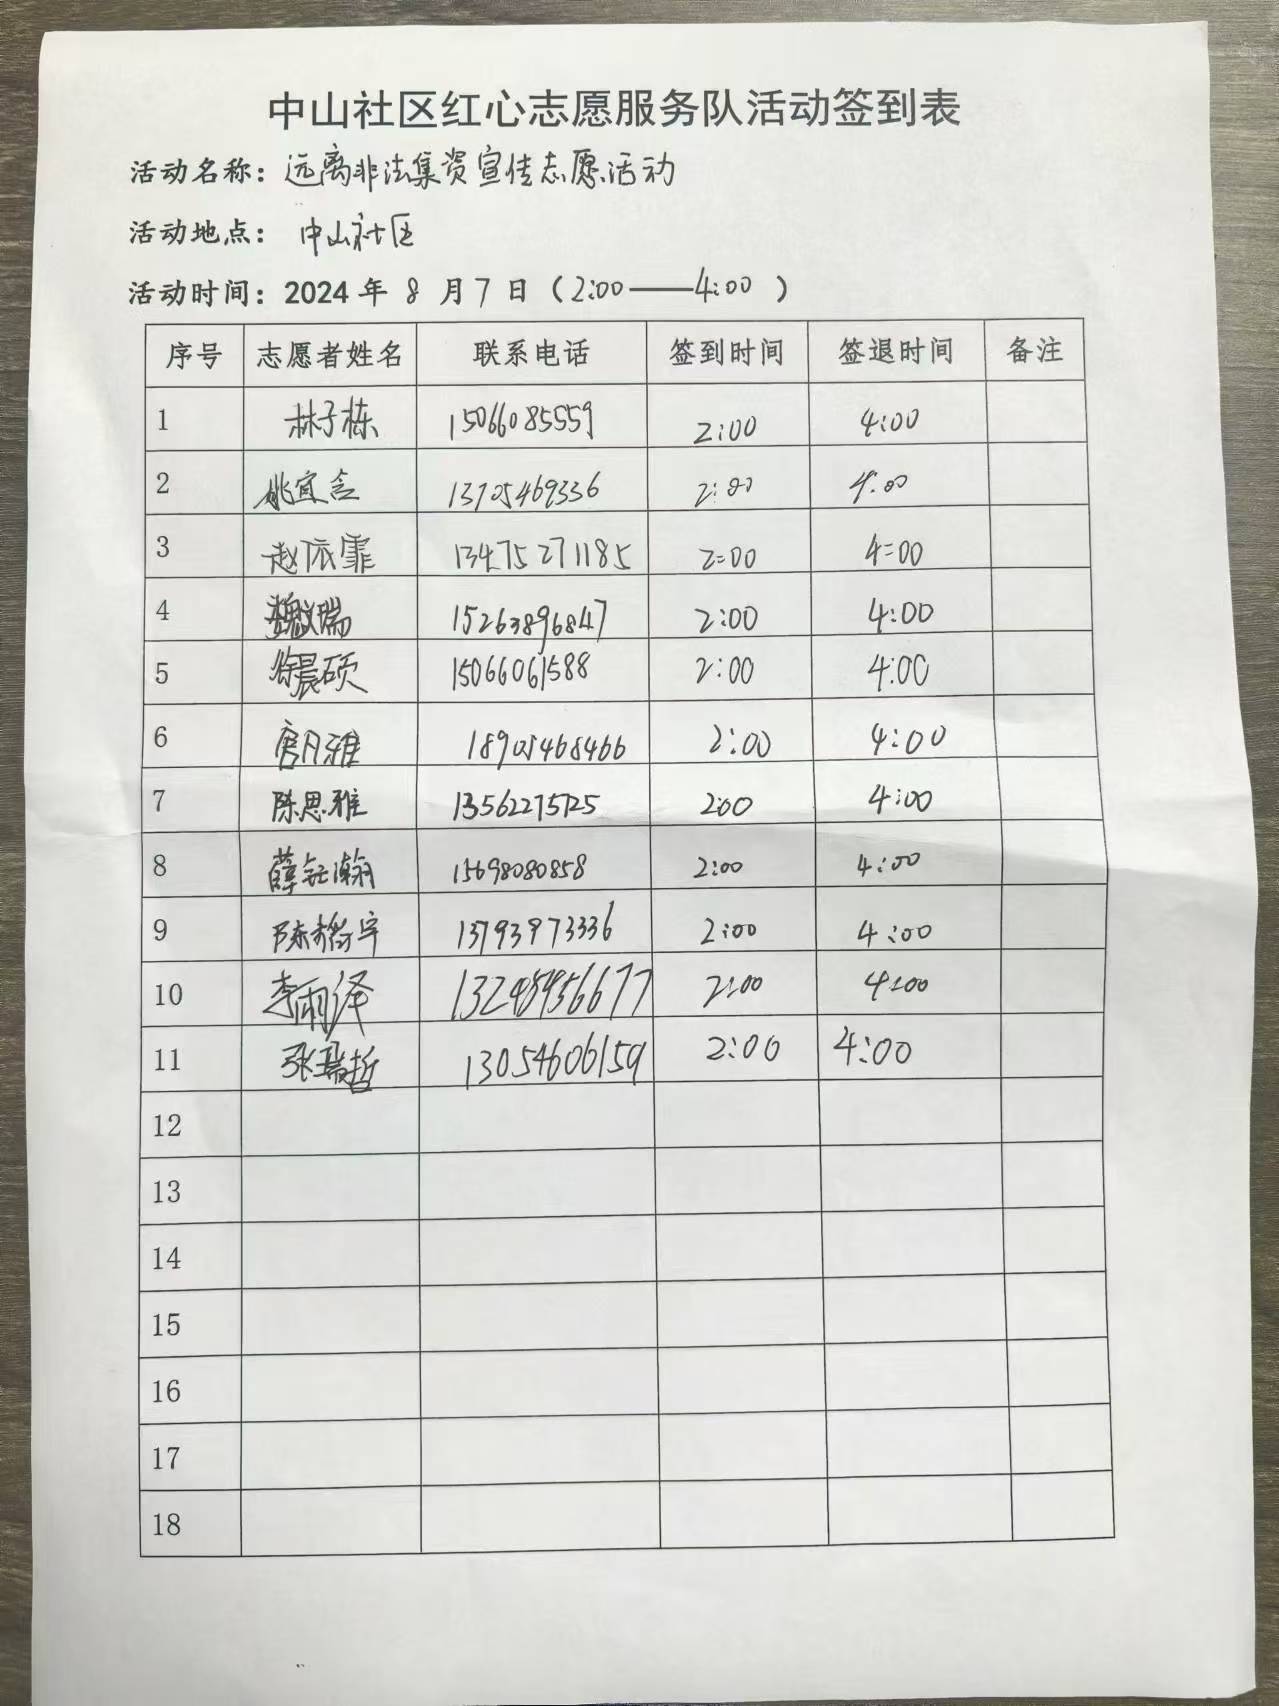 中山社区红心志愿服务队活动签到表
活动名称：远离非法集资宣传志愿活动
活动地点：中山社区
活动时间：2024年8月7日（2:00——4:00）
序号 志愿者姓名 联系电话 签到时间 签退时间 备注
1 林子栋 15066085559 2:00 4:00
2 姚宜含 13705469336 2:00 4:00
3 赵依霏 13475271185 2:00 4:00
4 魏瑞 15263896847 2:00 4:00
5 徐晨硕 15066061588 2:00 4:00
6 唐月雅 18905468466 2:00 4:00
7 陈思雅 13562275725 2:00 4:00
8 薛钰瀚 15698080858 2:00 4:00
9 陈宇 13793973336 2:00 4:00
10 李雨泽 2:00 4:00
11 张瑞哲 13054606159 2:00 4:00
12
13
14
15
16
17
18